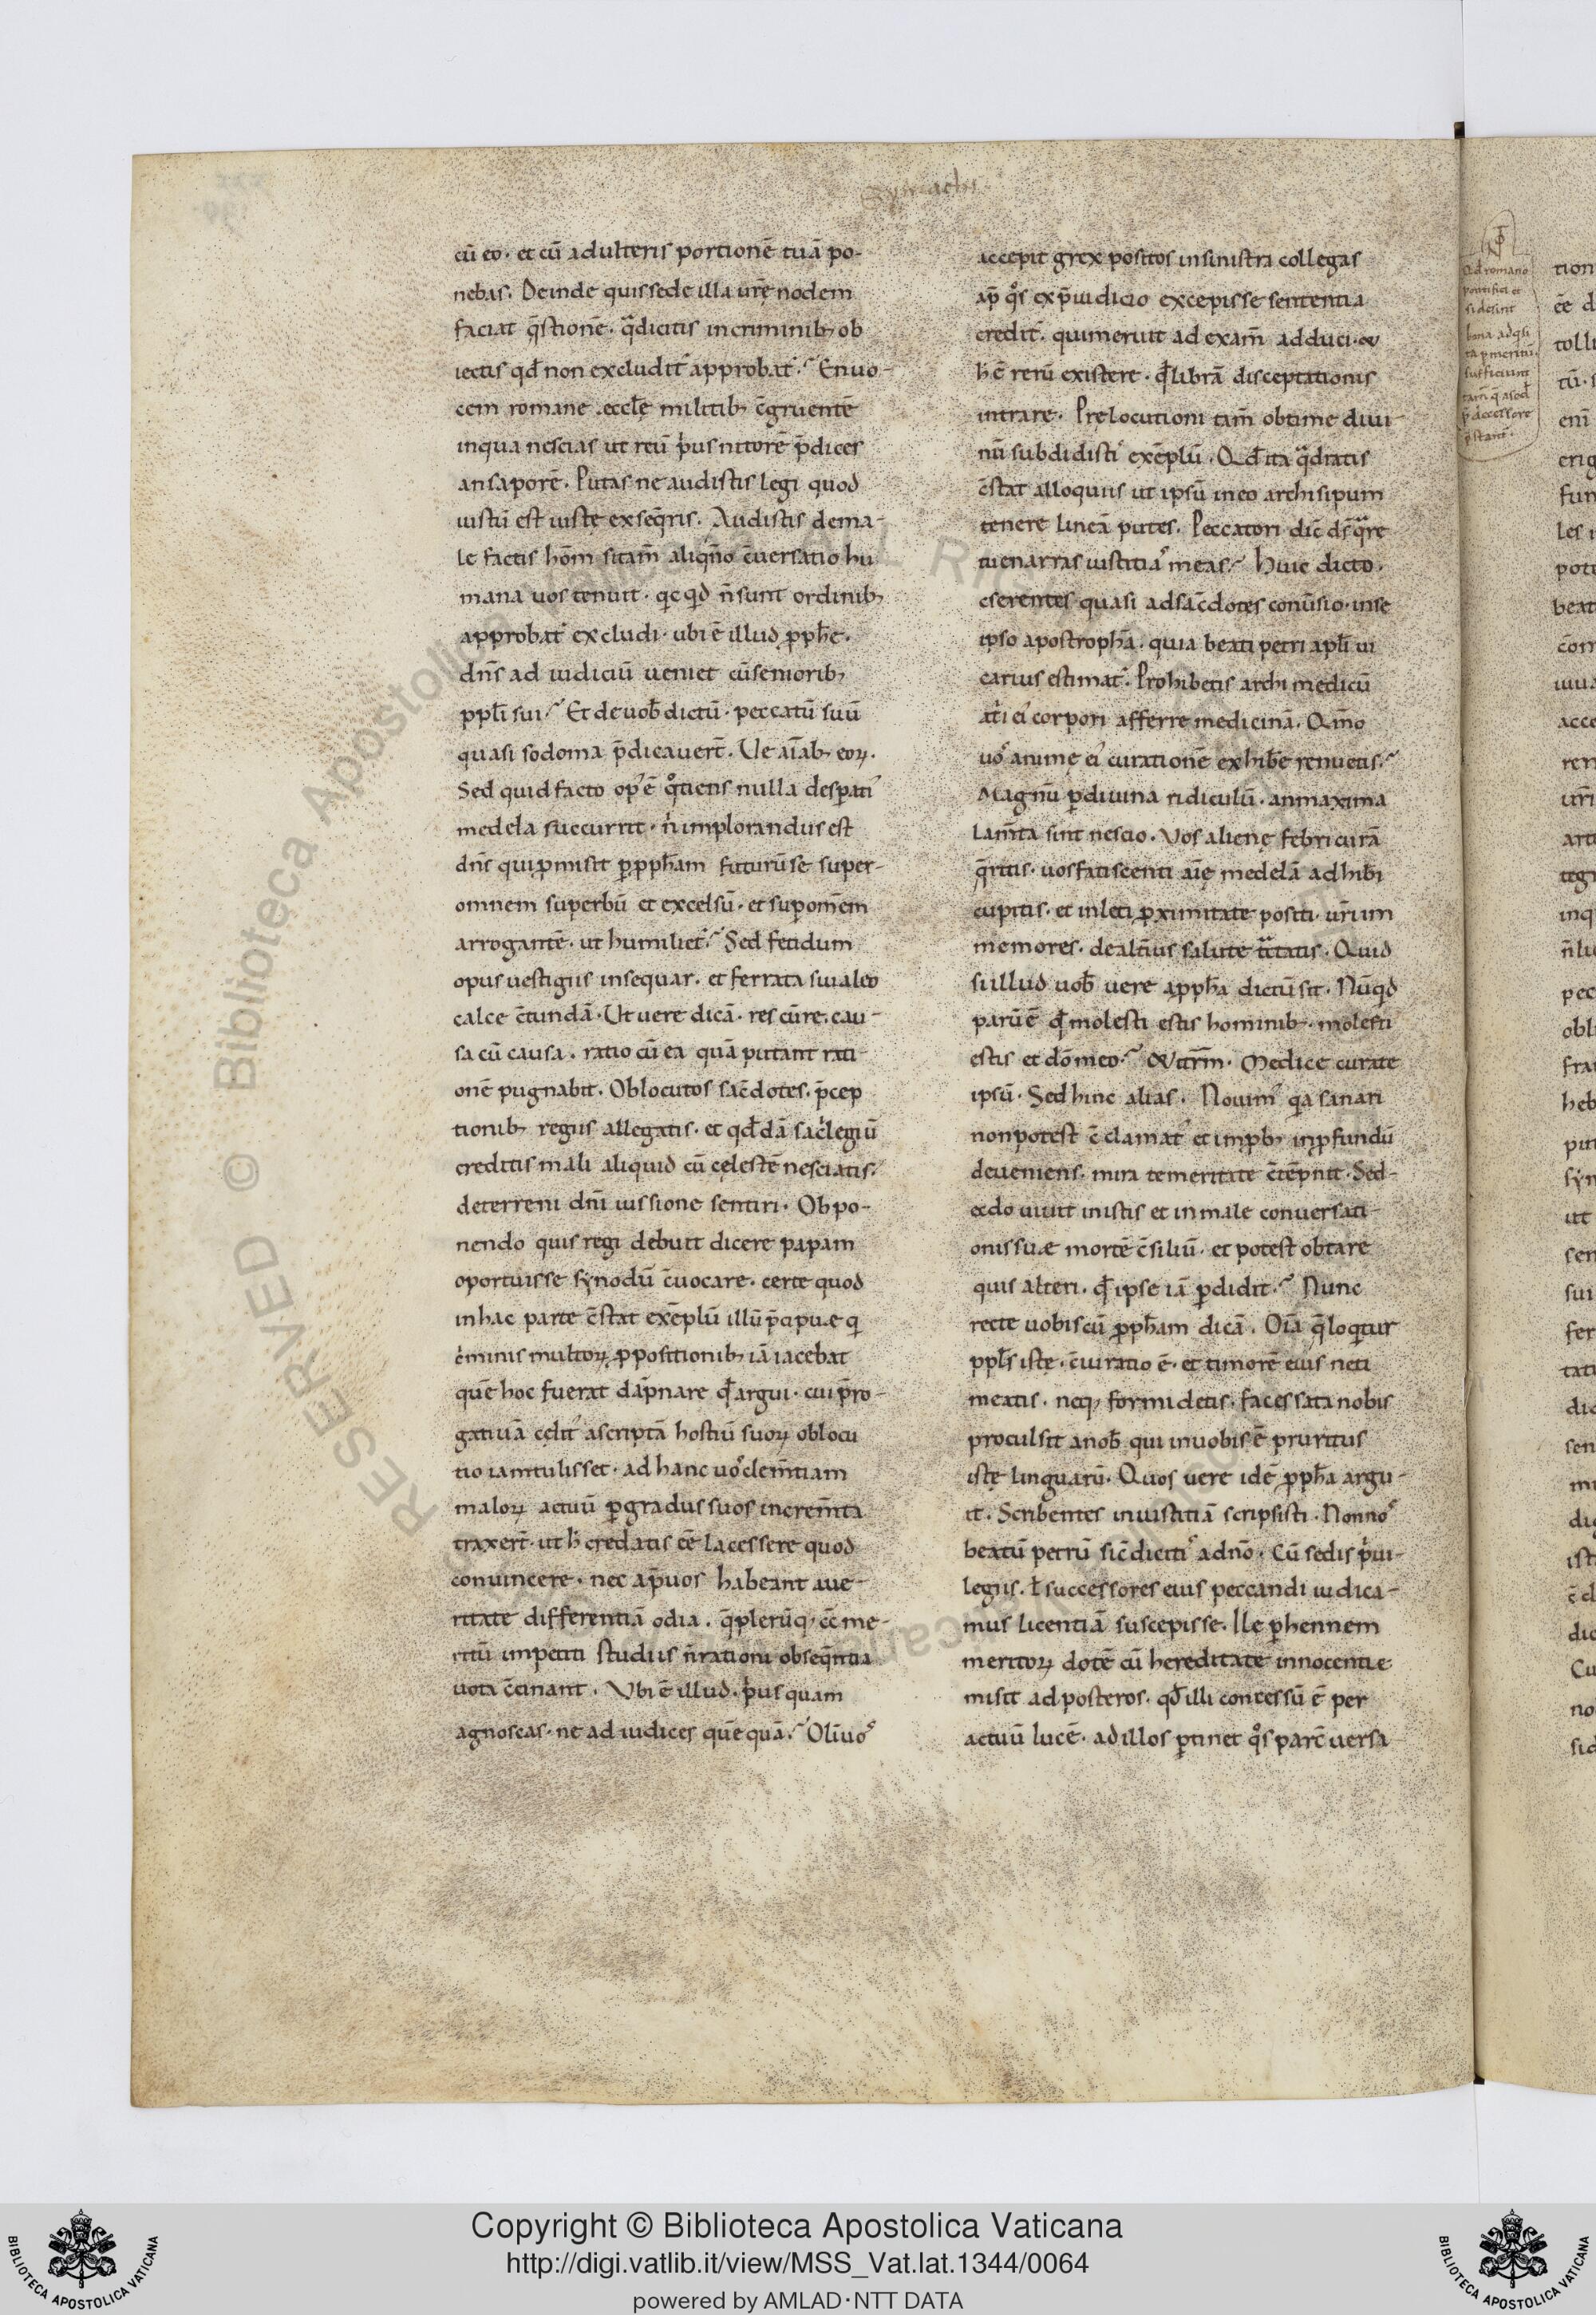 Symachi
cū eo. et cū adulteris portionē tuā po-
nebas. Deinde quis sede illa ur̄ę nodem
faciat q̄stionē. q̄ dicitis in criminib; ob
iectis qđ non excludit᷑ approbat᷑. En uo-
cem romanę eccl̄ę militib; c̄gruentē
in qua nescias ut reū p̄us nitorē p̄dices
an saporē. Putas ne audistis legi quod
iustū est iuste exseq̄ris. Audistis de ma-
le factis hōm sitam̄ aliqn̄o c̄uersatio hu
mana uos tenuit. qc qd n̄ sunt ordinib;
approbat᷑ excludi. ubi ē illud pph̄e.
dn̄s ad iudiciū ueniet cū seniorib;
ppl̄i sui. Et de uob̄ dictū. peccatū suū
quasi sodoma p̄dicauer̄t. Ve aīab; eoꝝ.
Sed quid facto op᾿ ē q̊tiens nulla desꝑati᾿
medela succurrit. n̄ implorandus est
dn̄s qui ꝓmisit ꝑ ꝓph̄am futurū se super-
omnem superbū et excelsū. et sup om̄em
arrogantē. ut humiliet᷑. Sed fetidum
opus uestigiis insequar. et ferrata suialeo
calce c̄tundā. Ut uere dicā. res cū re. cau-
sa cū causa. ratio cū ea quā putant rati-
onē pugnabit. Oblocutos sac̄dotes. p̄cep
tionib; regiis allegatis. et qđdā sac̄legiū
creditis mali aliquid cū cęlestē nesciatis.
deterreni dn̄i iussione sentiri. Obpo-
nendo quis regi debuit dicere papam
oportuisse synodū c̄uocare. certe quod
in hac parte c̄stat exēplū illū p̄cipue q
c̄minis multoꝝ ꝓpositionib; iā iacebat
quē hoc fuerat dāpnare qđ argui. cui p̄ro-
gatiuā cęlit᷑ ascriptā hostiū suoꝝ oblocu
tio iam tulisset. ad hanc uo᷒ clem̄tiam
maloꝝ actuū ꝑ gradus suos increm̄ta
traxer̄t. ut h̄ credatis eē lacessere quod
conuincere. nec ap̄ uos habeant a ue-
ritate differentiā odia. q̄ plerūq; cc̄ me-
ritū impetiti studiis n̄ rationi obseq̄ntia
uota c̄cinant. Ubi ē illud. p̄us quam
agnoscas. ne ad iudices quē quā. Olī uo᷒
accepit grex positos in sinistra collegas
ap̄ q̊s ex p̄iudicio excepisse sententia
credit᷑. qui meruit ad exam̄ adduci. &
h̄ ē rerū existere. qđ librā disceptationis
intrare. Prelocutioni tam̄ obtime diui
nū subdidisti᷑ exēplū. Qđ ita q̄dratis
c̄stat alloquiis ut ipsū in eo archisipum
tenere lineā putes. Peccatori dic̄ ds̄ q̄re
tu enarras iustitia᷒ meas. Huic dicto.
eserentes quasi ad sac̄dotes conūsio. in se
ipso apostrophā. quia beati petri apl̄i ui
carius estimat᷑. Prohibetis archimedicū
at̄i ei᾿ corpori afferre medicinā. Qm̄o
uo᷒ anime ei᾿ curationē exhib̄e renuetis.
Magnū ꝑ diuina ridiculū. an maxima
lam̄ta sint nescio. Vos alienę febri curā
q̄ritis. uos fatiscenti aīę medelā adhib̄i
cupitis. et in leti ꝓximitate positi. ur̄i im
memores. de alt̄ius salute tͣctatis. Quid
si illud uob̄ uere a ꝓph̄a dictū sit. Nūqd
parū ē qđ molesti estis hominib; molesti
estis et dō meo. & itr̄m. Medice cura te
ipsū. Sed hinc alias. Nouim᾿ qa sanari
non potest c̄clamat᷑ et imp̄b; in ꝓfundū
deueniens. mira temeritate c̄tēpnit. Sed-
ecdo uiuit in istis et in male conuersati-
onis suę mortē c̄siliū. et potest obtare
quis alteri. qđ ipse iā ꝑdidit. Nunc
recte uobiscū ꝓph̄am dicā. Oīa q̄ loqtur
ppl̄s iste. c̄iuratio ē. et timorē eius ne ti
meatis. neq; formidetis. facessat a nobis
procul sit a nob̄ qui in uobis ē pruritus
iste linguarū. Quos uere idē ꝓph̄a argu-
it. Scribentes iniustitiā scripsisti. Non no᷒
beatū petrū sic̄ dicit᷑ a dn̄o. Cū sedis p̄ui-
legiis. ł successores eius peccandi iudica-
mus licentiā suscepisse. Ille ꝑhennem
meritoꝝ dotē cū hereditate innocentię
misit ad posteros. qđ illi concessū ē per
actuū lucē. ad illos ꝑtinet q̊s par c̄uersa
Qd romano
pontifici et
si desint
bona adqsi
ta ꝑ meritū.
sufficiunt
tam̄ q̄ a sođ
p̄decessore
p̄stant᷑.
Copyright © Biblioteca Apostolica Vaticana
http://digi.vatlib.it/view/MSS_Vat.lat.1344/0064
powered by AMLAD·NTT DATA
BIBLIOTECA APOSTOLICA VATICANA
BIBLIOTECA APOSTOLICA VATICANA